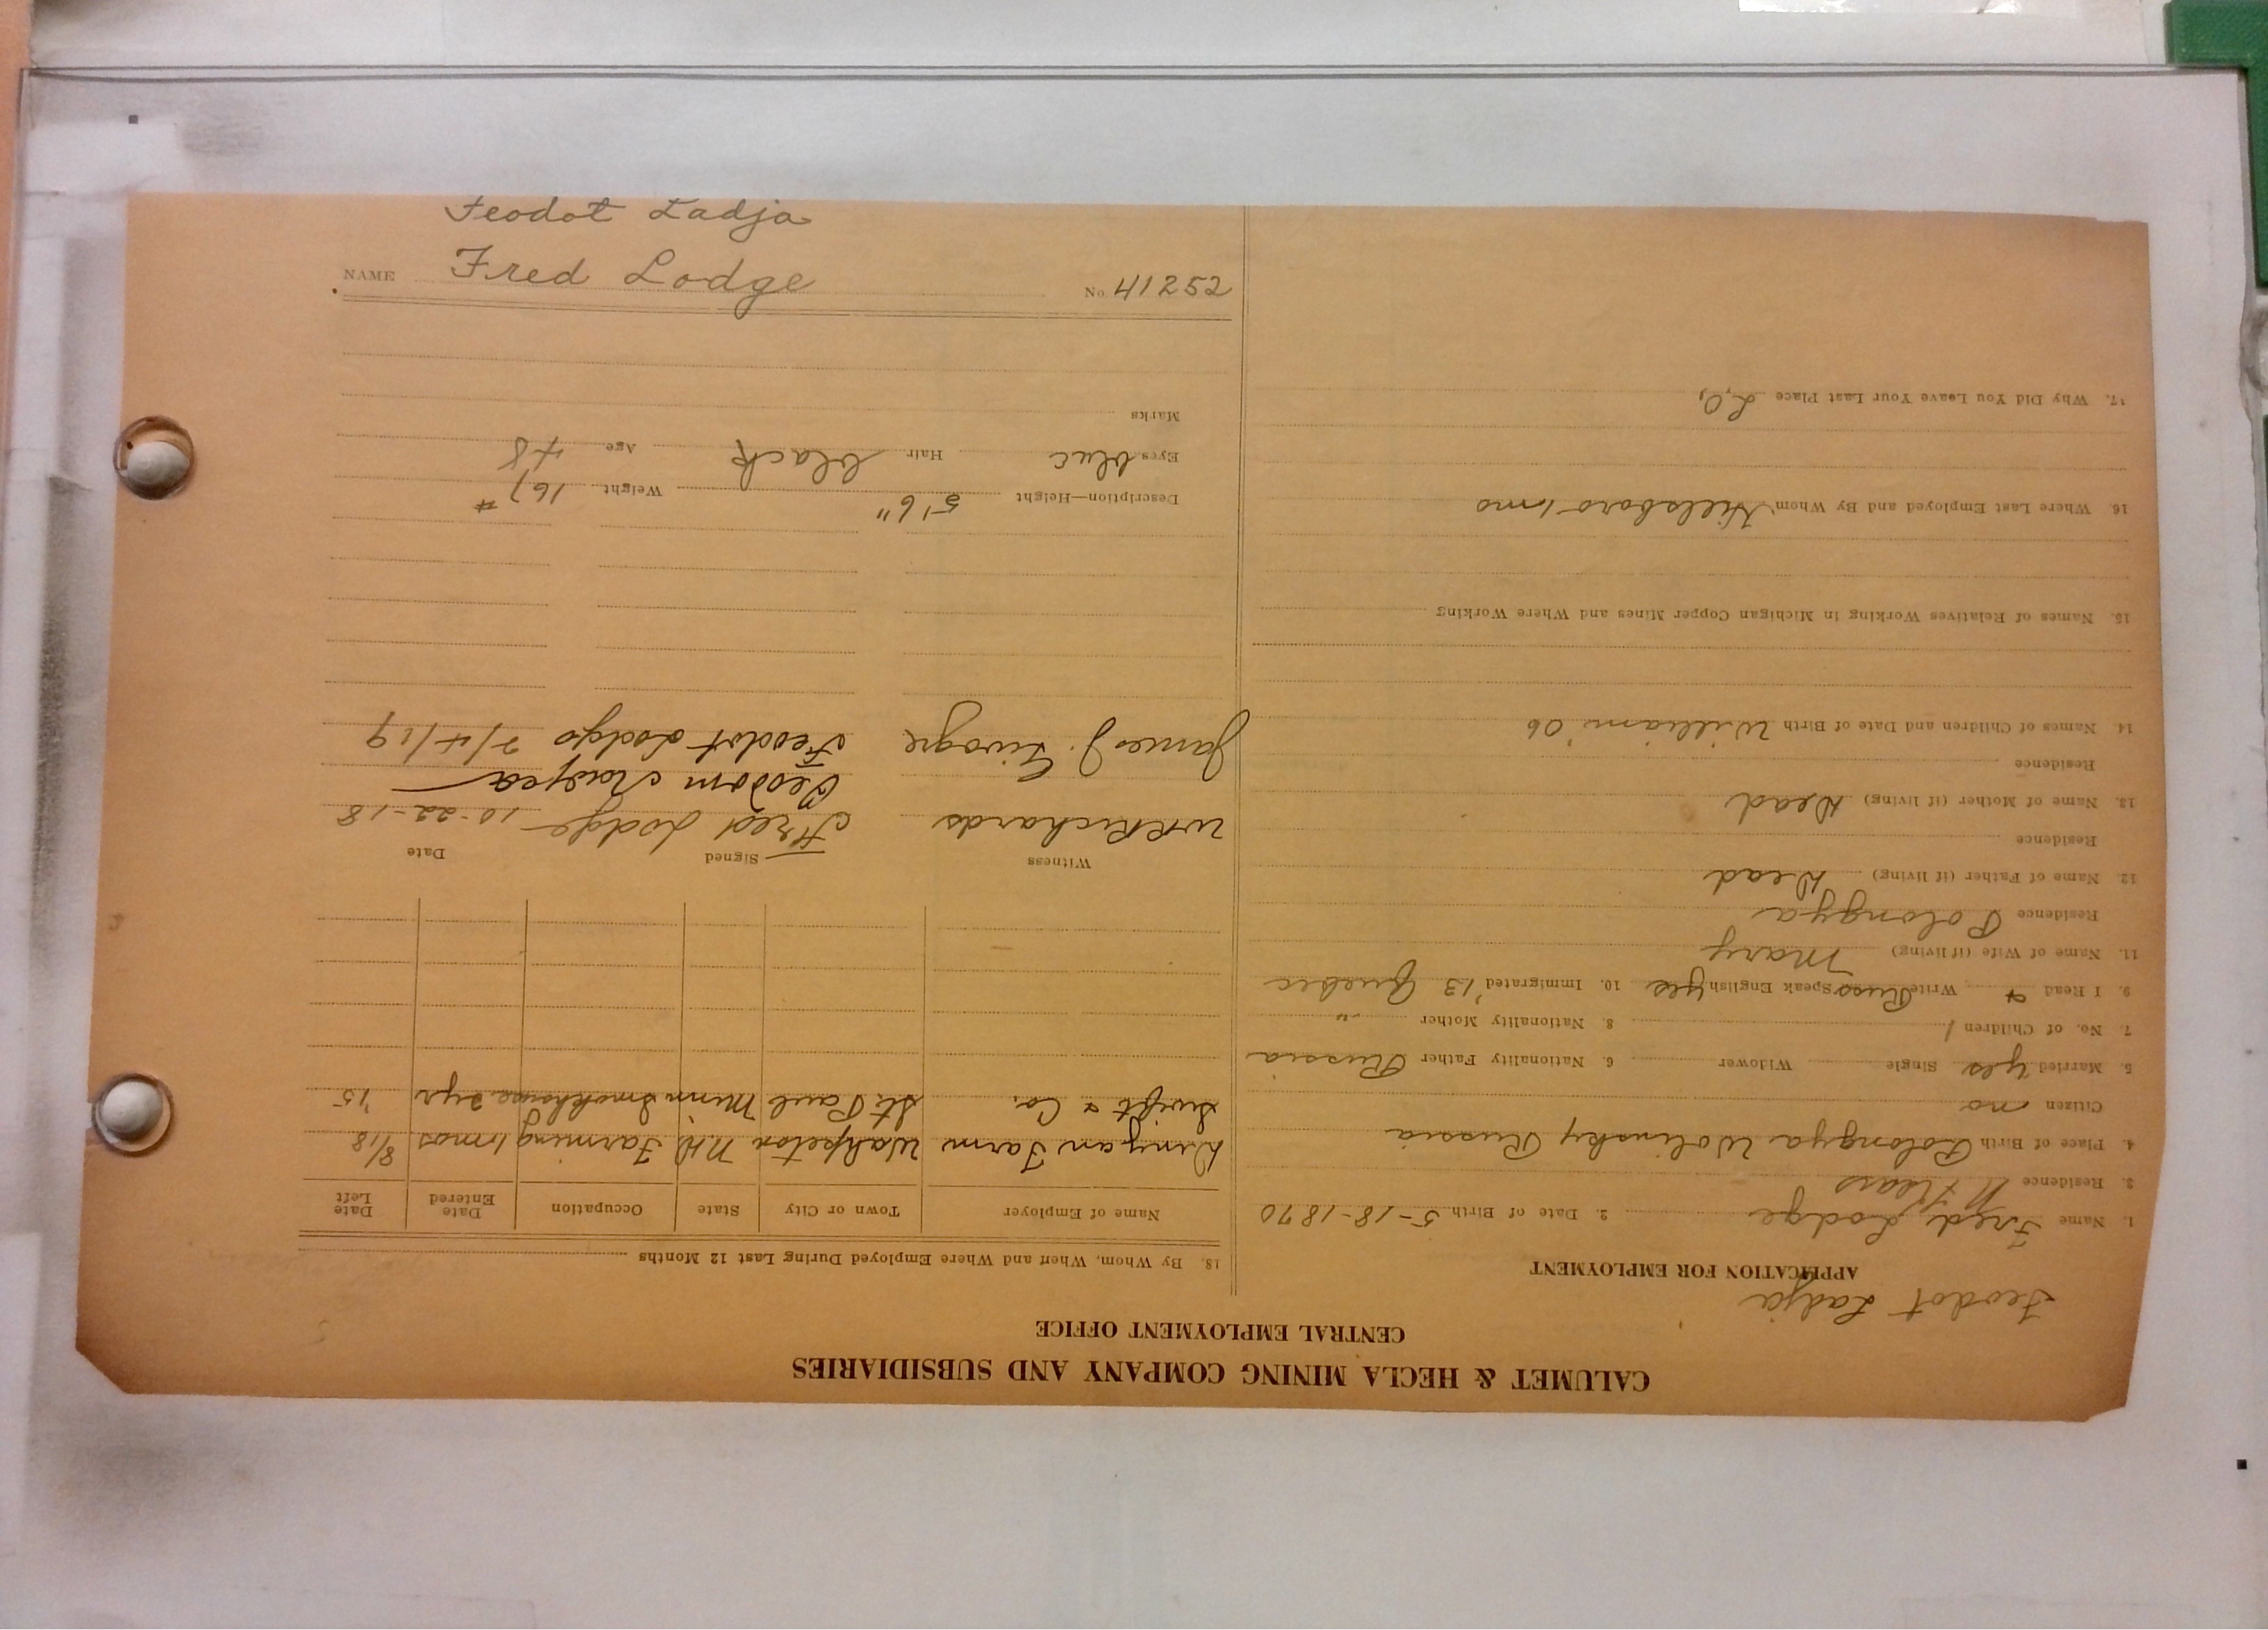 Feodot Ladja
NAME Fred Lodge No. 41252
CALUMET & HECLA MINING COMPANY AND SUBSIDIARIES
CENTRAL EMPLOYMENT OFFICE
Feodot Ladja
APPLICATION FOR EMPLOYMENT
1. Name Fred Lodge 2. Date of Birth 5-18-1870
3. Residence
4. Place of Birth Polongya Wolinsky Russia
Citizen no
5. Married yes Single Widower 6. Nationality Father Russia
7. No. of Children 1 8. Nationality Mother "
9. I Read & Write Russ Speak English yes 10. Immigrated '13 Quebec
11. Name of Wife (if living) Mary
Residence Polongya
12. Name of Father (if living) Dead
Residence
13. Name of Mother (if living) Dead
Residence
14. Names of Children and Date of Birth William '06
15. Names of Relatives Working in Michigan Copper Mines and Where Working
16. Where Last Employed and By Whom Hillsboro 1 mo
17. Why Did You Leave Your Last Place L.O.
18. By Whom, When and Where Employed During Last 12 Months
Name of Employer Town or City State Occupation Date Entered Date Left
Farm Wahpeton N.D. Farming mos 8/18
Swift & Co. St. Paul Minn Smokhouse 2 yr '15
Witness Signed Date
W R Richards Fred Lodge 10-22-18
James J. Feodot Lodgo 2/4/19
Description—Height 5'6" Weight 167 #
Eyes blue Hair black Age 48
Marks